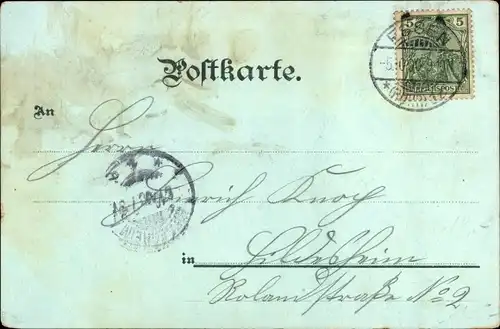 5
ESSEN
Postkarte.
An
Herrn
Heinrich Knoch
in Hildesheim
Rolandstraße No 2